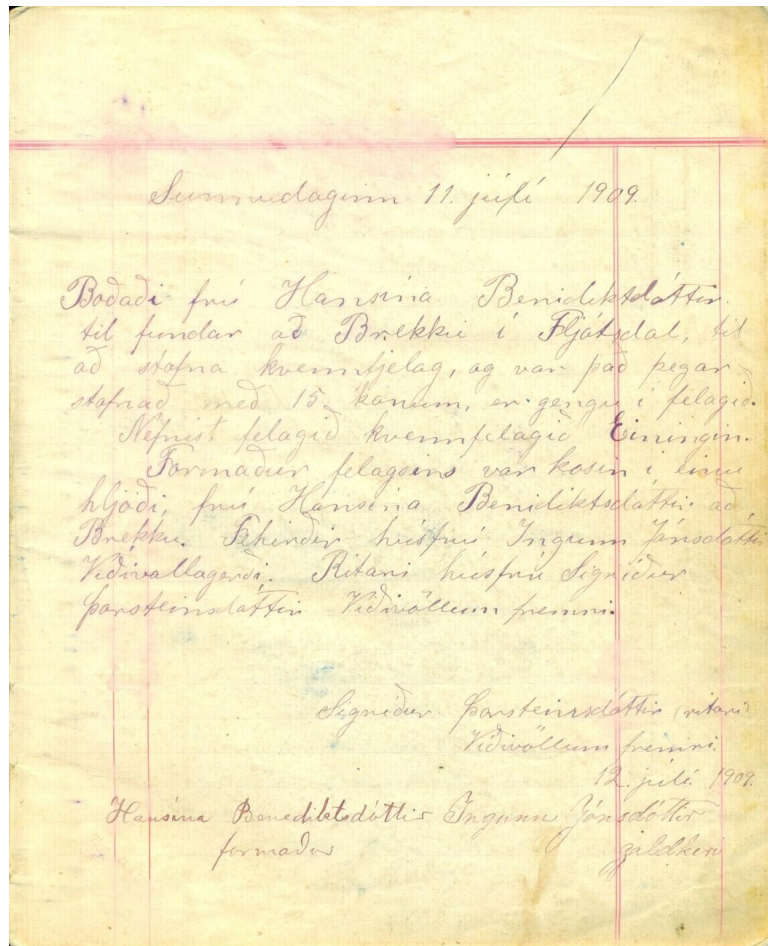 Sunnudaginn 11. júlí 1909.
Boðaði frú Hansína Benidiktsdóttir
til fundar að Brekku í Fljótsdal, til
að stofna kvennfjelag, og var það þegar
stofnað með 15 konum, er gengu i félagið.
Nefnist felagið kvennfelagið Einingin.
Formaður felagsins var kosin i einu
hljóði, frú Hansína Benidiktsdóttir að
Brekku. Féhirðir húsfrú Ingunn Jónsdóttir
Víðivallagerði. Ritari húsfrú Sigríður
Þorsteinsdóttir Víðivöllum fremri.
Sigríður Þorsteinsdóttir (ritari)
Víðivöllum fremri.
12. júlí 1909.
Hansína Benediktsdóttir Ingunn Jónsdóttir
formaður gjaldkeri